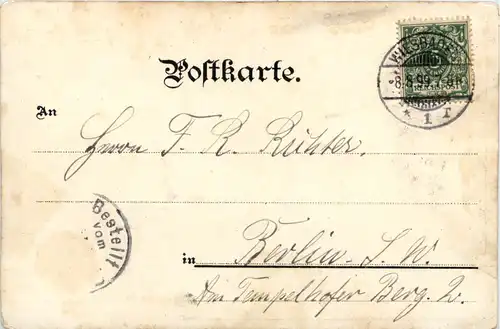 WIESBADEN
8.8.99
* 1 r
Postkarte.
An
Herrn F. R. Richter.
Bestellt
vom
in Berlin. S. W.
Am Tempelhofer Berg. 2.